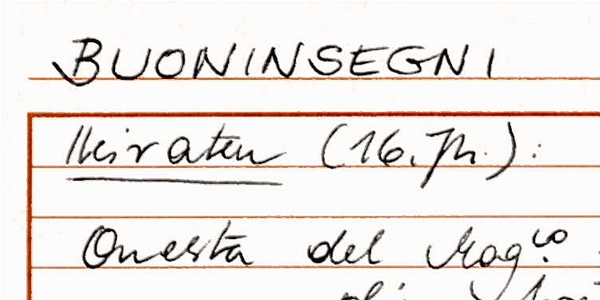 BUONINSEGNI
Heiraten (16. Jh.):
Questa del Mag.co